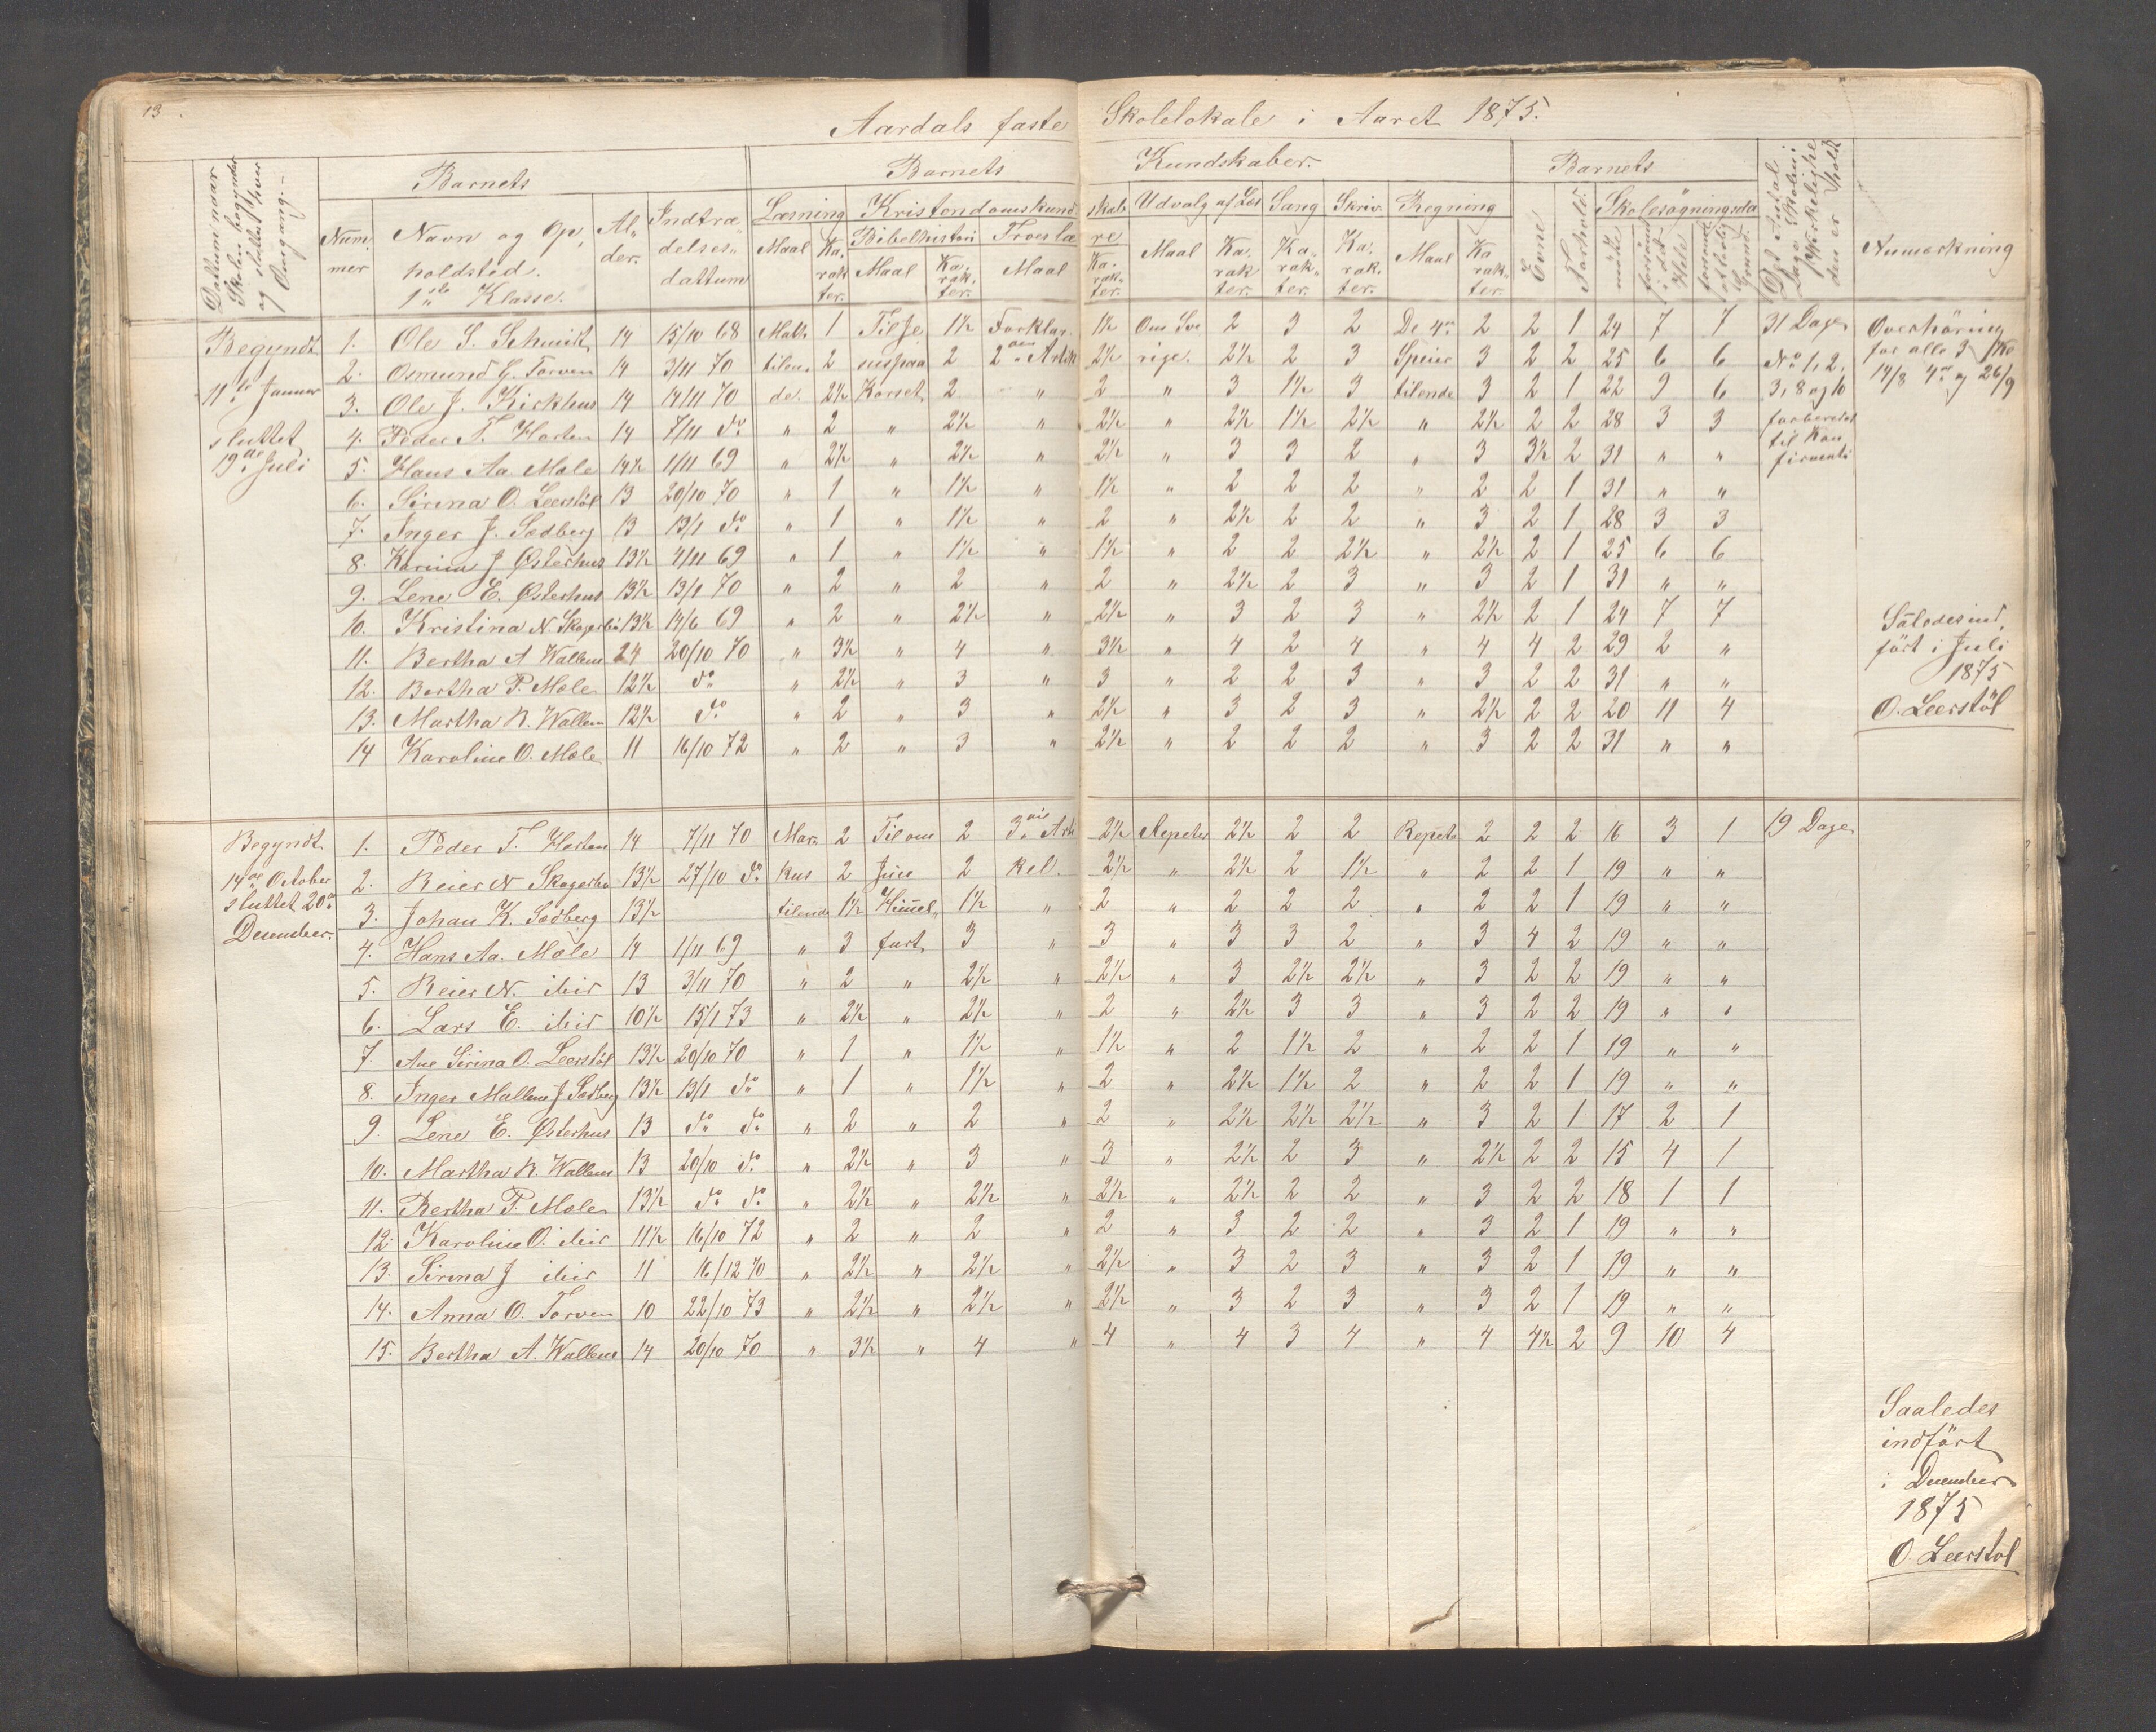 13
Aardals faste Skolelokale i Aaret 1875.
Dattum naar Skolen begynder og sluttes hver Omgang.
Barnets
Barnets Kundskaber.
Barnets
Det Antal Dage Skolen i Virkelighe den er holdt
Anmærkning
Num mer
Navn og Op holdsted.
1ste Klasse.
Al der.
Indtræ delses dattum
Læsning
Maal
Ka rak ter.
Kristendomskund skab
Bibelhistori
Maal
Ka rak ter.
Troeslæ re
Maal
Ka rak ter.
Udvalg af Læs
Maal
Ka rak ter.
Sang
Ka rak ter.
Skriv
Ka rak ter.
Regning
Maal
Ka rak ter.
Evne
Forhold.
Skolesøgningsda
mødte
forsømt i det Hele
forsømt af lovlig Grund.
Begyndt
11te Januar
sluttet
19de Juli
1. Ole S. Schmidt 14 15/10 68 Math. 1 Til Je 1½ Forklar. 1½ Om Sve 2 3 2 De 4re 2 2 1 24 7 7 31 Dage
2. Osmund G. Torven 14 3/11 70 tilen 2 sus paa 2 2den Artik 2½ rige. 2½ 2 3 Speier 3 2 2 25 6 6
3. Ole J. Kirkhus 14 14/11 70 de. 2½ Korset 2 " 2 " 3 1½ 3 tilende 3 2 1 22 9 6
4. Peder T. Horten 14 7/11 do " 2 " 2½ " 2½ " 2½ 1½ 2½ " 2½ 2 2 28 3 3
5. Hans Aa. Mæle 14½ 1/11 69 " 2½ " 2½ " 2½ " 3 3 2 " 3 3½ 2 31 " "
6. Sirina O. Leerstöl 13 20/10 70 " 1 " 1½ " 1½ " 2 2 2 " 2 2 1 31 " "
7. Inger J. Sedberg 13 13/1 do " 1 " 1½ " 2 " 2½ 2 2 " 3 2 1 28 3 3
8. Karina J Østerhus 13½ 4/11 69 " 1 " 1½ " 1½ " 2 2 2½ " 2½ 2 1 25 6 6
9. Lene E. Østerhus 13½ 13/1 70 " 2 " 2 " 2 " 2½ 2 3 " 3 2 1 31 " "
10. Kristina N. Skogerbö 13½ 14/6 69 " 2 " 2½ " 2½ " 3 2 3 " 2½ 2 1 24 7 7
11. Bertha A Wallem 14 20/10 70 " 3½ " 4 " 3½ " 4 2 4 " 4 4 2 29 2 "
12. Bertha P. Mæle 12½ do " 2½ " 3 " 3 " 2 2 3 " 3 2 2 31 " "
13. Martha R. Wallem 12½ do " 2 " 3 " 2½ " 3 2 3 " 2½ 2 2 20 11 4
14 Karoline O. Mæle 11 16/10 72 " 2 " 3 " 2½ " 2 2 2 " 3 2 2 31 " "
No 1, 2,
3, 8 og 10
forberedet
til Kon
firmati
Overhöring
for alle 3
14/8 4de og 26/9
Således ind
fört i Juli
1875
O. Leerstöl
Begyndt
14de October
sluttet 20de
December.
1. Peder T. Horten 14 7/11 70 Mar 2 Til om 2 3die Art 2½ Repeter 2½ 2 2 Repete 2 2 2 16 3 1 19 Dage
2. Reier N Skogerbö 13½ 27/10 do kus 2 Jesu 2 kel. 2½ " 2½ 2 1½ " 2 2 1 19 " "
3. Johan K. Sedberg 13½ tilende 1½ Himel 1½ " 2 " 2 2 2 " 2 2 1 19 " "
4. Hans Aa. Mæle 14 1/11 69 " 3 fart 3 " 3 " 3 3 2 " 3 4 2 19 " "
5. Reier N. ibid 13 3/11 70 " 2 " 2½ " 2½ " 3 2½ 2½ " 3 2 2 19 " "
6. Lars E. ibid 10½ 15/1 73 " 2½ " 2½ " 2 " 2½ 3 3 " 3 2 2 19 " "
7. Ane Sirina O. Leerstöl 13½ 20/10 70 " 1 " 1½ " 1½ " 2 1½ 2 " 2 2 1 19 " "
8. Inger Mallene J Sedberg 13½ 13/1 do " 1 " 1½ " 2 " 2½ 1½ 2 " 2 2 1 19 " "
9. Lene E. Østerhus 13 do do " 2 " 2 " 2 " 2½ 2½ 2½ " 3 2 1 17 2 1
10. Martha R. Wallem 13 20/10 do " 2½ " 3 " 3 " 2½ 2 3 " 2½ 2 2 15 4 1
11. Bertha P. Mæle 13½ do do " 2½ " 2½ " 2½ " 2½ 2 2 " 3 2 2 18 1 1
12 Karoline O. ibid 11½ 16/10 72 " 2 " 2 " 2 " 3 2 2 " 3 2 1 19 " "
13. Sirina J ibid 11 16/12 70 " 2½ " 2½ " 2½ " 3 2 3 " 3 2 1 19 " "
14. Anna O. Torven 10 22/10 73 " 2½ " 2½ " 2½ " 3 2 3 " 3 2 1 19 " "
15. Bertha A. Wallem 14 20/10 70 " 3½ " 4 " 4 " 4 3 4 " 4 4½ 2 9 10 4
Saaledes
indfört
i December
1875
O. Leerstöl